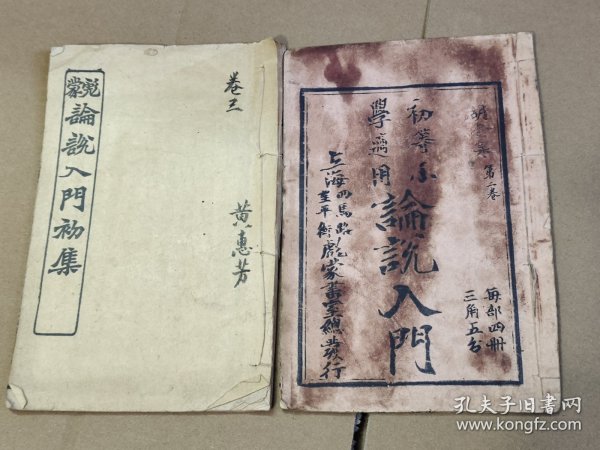 彪蒙論說入門初集
卷三
黄惠芳
第二卷
初等小學適用
論說入門
每部四冊
三角五分
上海四馬路
平街彪蒙書室總發行
孔夫子旧书网
www.kongfz.com